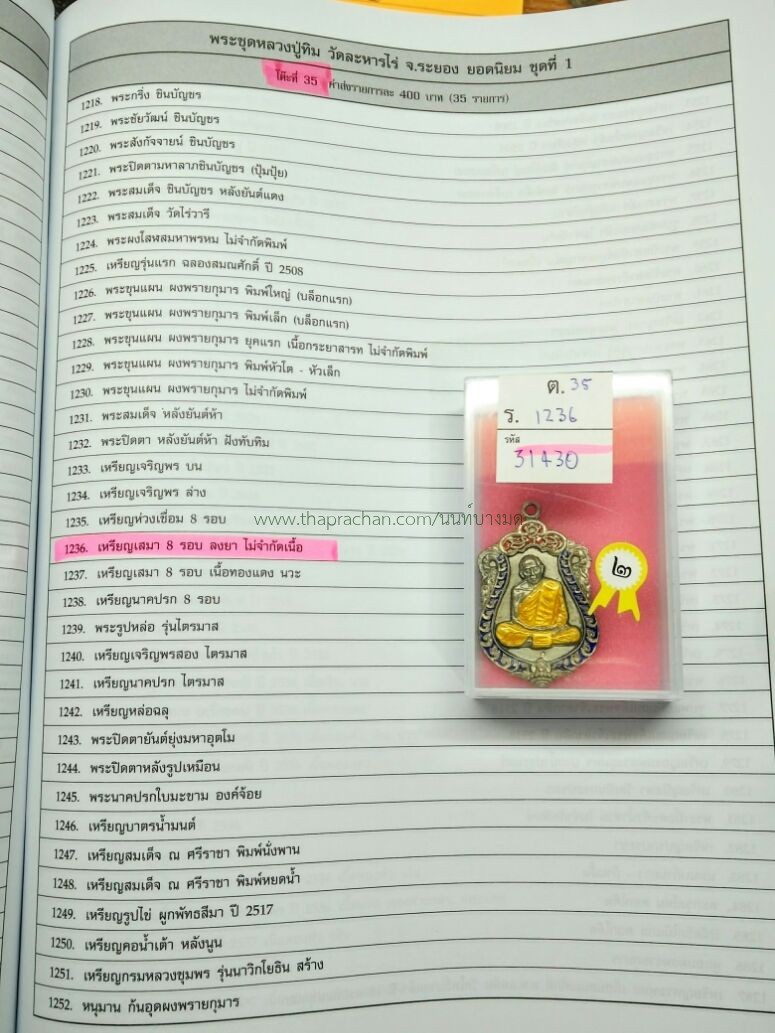 พระชุดหลวงปู่ทิม วัดละหารไร่ จ.ระยอง ยอดนิยม ชุดที่ 1
โต๊ะที่ 35 ค่าส่งรายการละ 400 บาท (35 รายการ)
1218. พระกริ่ง ชินบัญชร
1219. พระชัยวัฒน์ ชินบัญชร
1220. พระสังกัจจายน์ ชินบัญชร
1221. พระปิดตามหาลาภชินบัญชร (ปุ้มปุ้ย)
1222. พระสมเด็จ ชินบัญชร หลังยันต์แดง
1223. พระสมเด็จ วัดไร่วารี
1224. พระผงโสฬสมหาพรหม ไม่จำกัดพิมพ์
1225. เหรียญรุ่นแรก ฉลองสมณศักดิ์ ปี 2508
1226. พระขุนแผน ผงพรายกุมาร พิมพ์ใหญ่ (บล็อกแรก)
1227. พระขุนแผน ผงพรายกุมาร พิมพ์เล็ก (บล็อกแรก)
1228. พระขุนแผน ผงพรายกุมาร ยุคแรก เนื้อกระยาสารท ไม่จำกัดพิมพ์
1229. พระขุนแผน ผงพรายกุมาร พิมพ์หัวโต - หัวเล็ก
1230. พระขุนแผน ผงพรายกุมาร ไม่จำกัดพิมพ์
1231. พระสมเด็จ หลังยันต์ห้า
1232. พระปิดตา หลังยันต์ห้า ฝังทับทิม
1233. เหรียญเจริญพร บน
1234. เหรียญเจริญพร ล่าง
1235. เหรียญห่วงเชื่อม 8 รอบ
1236. เหรียญเสมา 8 รอบ ลงยา ไม่จำกัดเนื้อ
1237. เหรียญเสมา 8 รอบ เนื้อทองแดง นวะ
1238. เหรียญนาคปรก 8 รอบ
1239. พระรูปหล่อ รุ่นไตรมาส
1240. เหรียญเจริญพรสอง ไตรมาส
1241. เหรียญนาคปรก ไตรมาส
1242. เหรียญหล่อฉลุ
1243. พระปิดตายันต์ยุ่งมหาอุตโม
1244. พระปิดตาหลังรูปเหมือน
1245. พระนาคปรกใบมะขาม องค์จ้อย
1246. เหรียญบาตรน้ำมนต์
1247. เหรียญสมเด็จ ณ ศรีราชา พิมพ์นั่งพาน
1248. เหรียญสมเด็จ ณ ศรีราชา พิมพ์หยดน้ำ
1249. เหรียญรูปไข่ ผูกพัทธสีมา ปี 2517
1250. เหรียญคอน้ำเต้า หลังนูน
1251. เหรียญกรมหลวงชุมพร รุ่นนาวิกโยธิน สร้าง
1252. หนุมาน ก้นอุดผงพรายกุมาร
ต. 35
ร. 1236
รหัส
31430
๒
www.thaprachan.com/นนท์บางมด